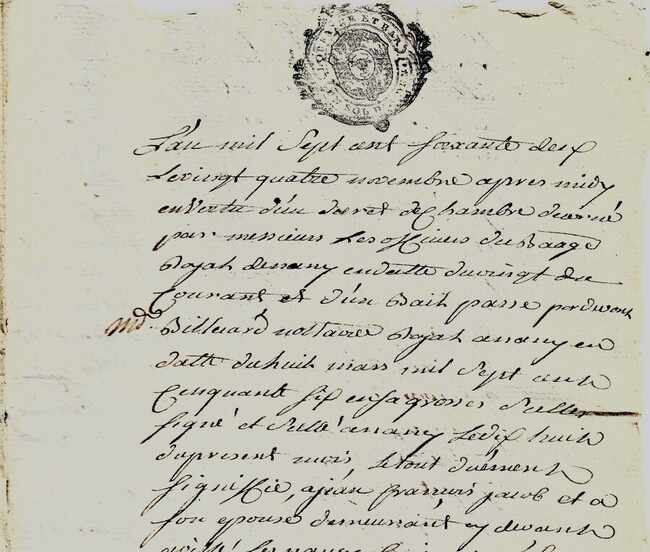 LORRAINE ET BAR
SOL
L'an mil Sept cent soixante deux
Le vingt quatre novembre apres midy
en Vertu d'un decret de Chambre decerné
par messieurs Les officiers du Baage
Royal de nancy en datte du vingt du
Courant et d'un Bail passé par devant
md
Billecard nottaire Royal a nancy en
datte du huit mars mil Sept cent
Cinquante Six en sa grosse Scellée
signé et Scellé a nancy Le dix huit
du present mois, Le tout duement
signiffié, a jean francois jacob et a
son epouse demeurant cy devant